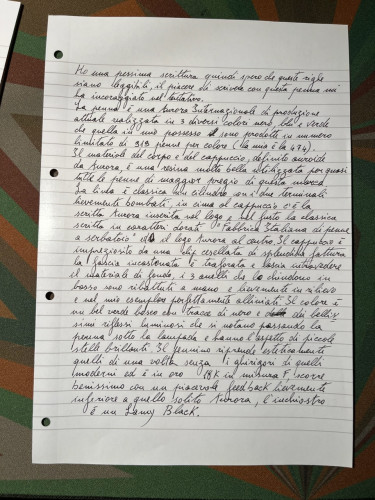 Ho una pessima scrittura quindi spero che queste righe
siano leggibili, il piacere di scrivere con questa penna mi
ha incoraggiato nel tentativo.
La penna è una Aurora Internazionale di produzione
attuale realizzata in 3 diversi colori nero, blu e verde
che quella in mio possesso sono prodotte in numero
limitato di 919 penne per colore (la mia è la 474).
Il materiale del corpo e del cappuccio, definito auroide
da Aurora, è una resina molto bella utilizzata per quasi
tutte le penne di maggior pregio di questa marca
La linea è classica un cilindro con i due terminali
lievemente bombati, in cima al cappuccio c'è la
scritta Aurora inserita nel logo e nel fusto la classica
scritta in caratteri dorati "Fabbrica Italiana di penne
a serbatoio" il logo Aurora al centro. Il cappuccio è
impreziosito da una clip cesellata di splendida fattura
la fascia incastonata è traforata e lascia intravedere
il materiale di fondo, i 3 anelli che la chiudono in
basso sono ribattuti a mano e lievemente in rilievo
e nel mio esemplare perfettamente allineati. Il colore è
un bel verde bosco con tracce di nero e dei bellis
simi riflessi luminosi che si notano passando la
penna sotto la lampada e hanno l'aspetto di piccole
stelle brillanti. Il pennino riprende esteticamente
quelli di una volta senza i ghirigori di quelli
moderni ed è in oro 18K in misura F, scorre
benissimo con un piacevole feedback lievemente
inferiore a quello solito Aurora, l'inchiostro
è un Lamy Black.